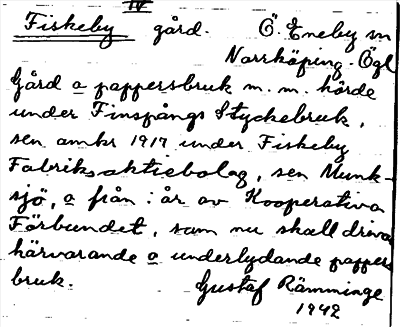 IV
Fiskeby gård. Ö. Eneby sn
Norrköping. Ögl
Gård o pappersbruk m. m. hörde
under Finspångs Styckebruk,
sen omkr 1917 under Fiskeby
Fabriksaktiebolag, sen Munk-
sjö, o från i år av Kooperativa
Förbundet, som nu skall driva
härvarande o underlydande pappers
bruk. Gustaf Rämminge
1942